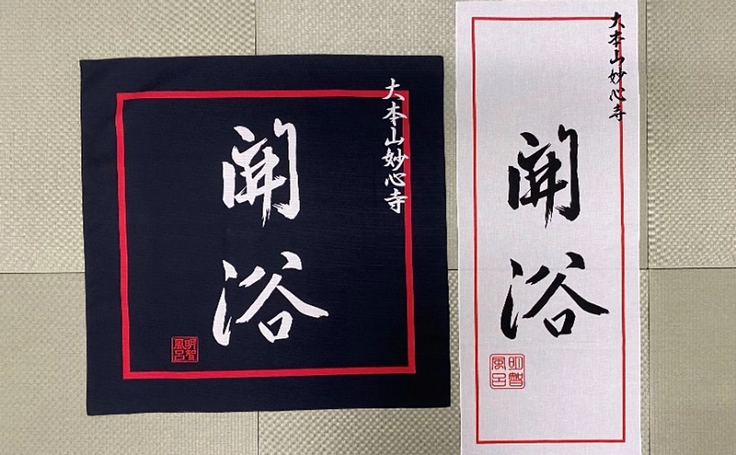 大本山妙心寺
開浴
明智
風呂
大本山妙心寺
開浴
明智
風呂